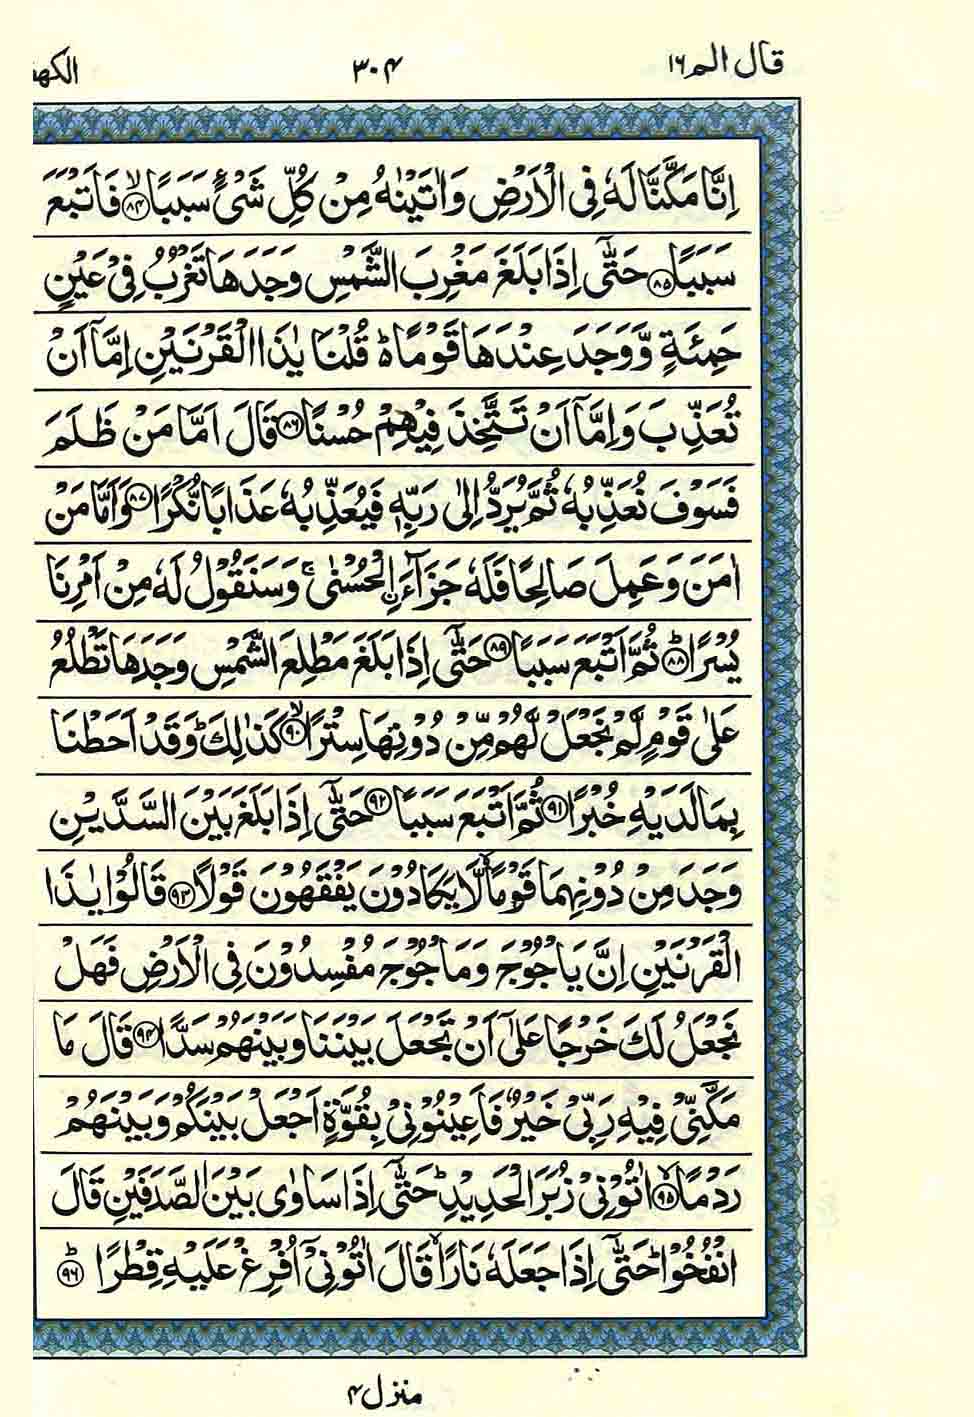 قال الم ١٦
٣٠٤
الكهف
اِنَّا مَكَّنَّا لَهٗ فِى الْاَرْضِ وَاٰتَيْنٰهُ مِنْ كُلِّ شَىْءٍ سَبَبًا ۙ﴿٨٤﴾ فَاَتْبَعَ
سَبَبًا ﴿٨٥﴾ حَتّٰٓى اِذَا بَلَغَ مَغْرِبَ الشَّمْسِ وَجَدَهَا تَغْرُبُ فِىْ عَيْنٍ
حَمِئَةٍ وَّوَجَدَ عِنْدَهَا قَوْمًا ؕ قُلْنَا يٰذَا الْقَرْنَيْنِ اِمَّاۤ اَنْ
تُعَذِّبَ وَاِمَّاۤ اَنْ تَتَّخِذَ فِيْهِمْ حُسْنًا ﴿٨٦﴾ قَالَ اَمَّا مَنْ ظَلَمَ
فَسَوْفَ نُعَذِّبُهٗ ثُمَّ يُرَدُّ اِلٰى رَبِّهٖ فَيُعَذِّبُهٗ عَذَابًا نُّكْرًا ﴿٨٧﴾ وَاَمَّا مَنْ
اٰمَنَ وَعَمِلَ صَالِحًا فَلَهٗ جَزَآءَ ۨالْحُسْنٰى ۚ وَسَنَقُوْلُ لَهٗ مِنْ اَمْرِنَا
يُسْرًا ؕ﴿٨٨﴾ ثُمَّ اَتْبَعَ سَبَبًا ﴿٨٩﴾ حَتّٰٓى اِذَا بَلَغَ مَطْلِعَ الشَّمْسِ وَجَدَهَا تَطْلُعُ
عَلٰى قَوْمٍ لَّمْ نَجْعَلْ لَّهُمْ مِّنْ دُوْنِهَا سِتْرًا ۙ﴿٩٠﴾ كَذٰلِكَ ؕ وَقَدْ اَحَطْنَا
بِمَا لَدَيْهِ خُبْرًا ﴿٩١﴾ ثُمَّ اَتْبَعَ سَبَبًا ﴿٩٢﴾ حَتّٰٓى اِذَا بَلَغَ بَيْنَ السَّدَّيْنِ
وَجَدَ مِنْ دُوْنِهِمَا قَوْمًا ۙ لَّا يَكَادُوْنَ يَفْقَهُوْنَ قَوْلًا ﴿٩٣﴾ قَالُوْا يٰذَا
الْقَرْنَيْنِ اِنَّ يَاْجُوْجَ وَمَاْجُوْجَ مُفْسِدُوْنَ فِى الْاَرْضِ فَهَلْ
نَجْعَلُ لَكَ خَرْجًا عَلٰٓى اَنْ تَجْعَلَ بَيْنَنَا وَبَيْنَهُمْ سَدًّا ﴿٩٤﴾ قَالَ مَا
مَكَّنِّىْ فِيْهِ رَبِّىْ خَيْرٌ فَاَعِيْنُوْنِىْ بِقُوَّةٍ اَجْعَلْ بَيْنَكُمْ وَبَيْنَهُمْ
رَدْمًا ۙ﴿٩٥﴾ اٰتُوْنِىْ زُبَرَ الْحَدِيْدِ ؕ حَتّٰٓى اِذَا سَاوٰى بَيْنَ الصَّدَفَيْنِ قَالَ
انْفُخُوْا ؕ حَتّٰٓى اِذَا جَعَلَهٗ نَارًا ۙ قَالَ اٰتُوْنِىْۤ اُفْرِغْ عَلَيْهِ قِطْرًا ؕ﴿٩٦﴾
منزل ٤